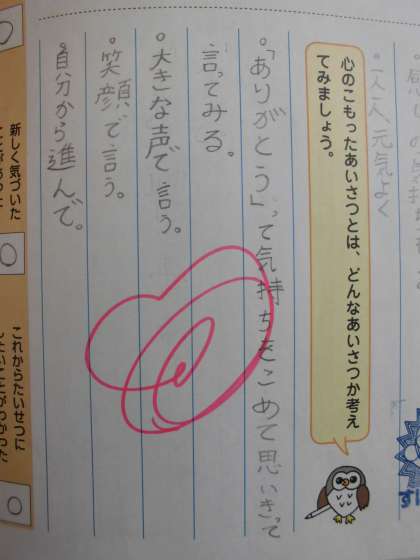 一人一人、元気よく
心のこもったあいさつとは、どんなあいさつか考え
てみましょう。
・「ありがとう」って気持ちをこめて思いきって
言ってみる。
・大きな声で言う。
・笑顔で言う。
・自分から進んで。
新しく気づいた
ことがあった
これからたいせつに
したいことがわかった